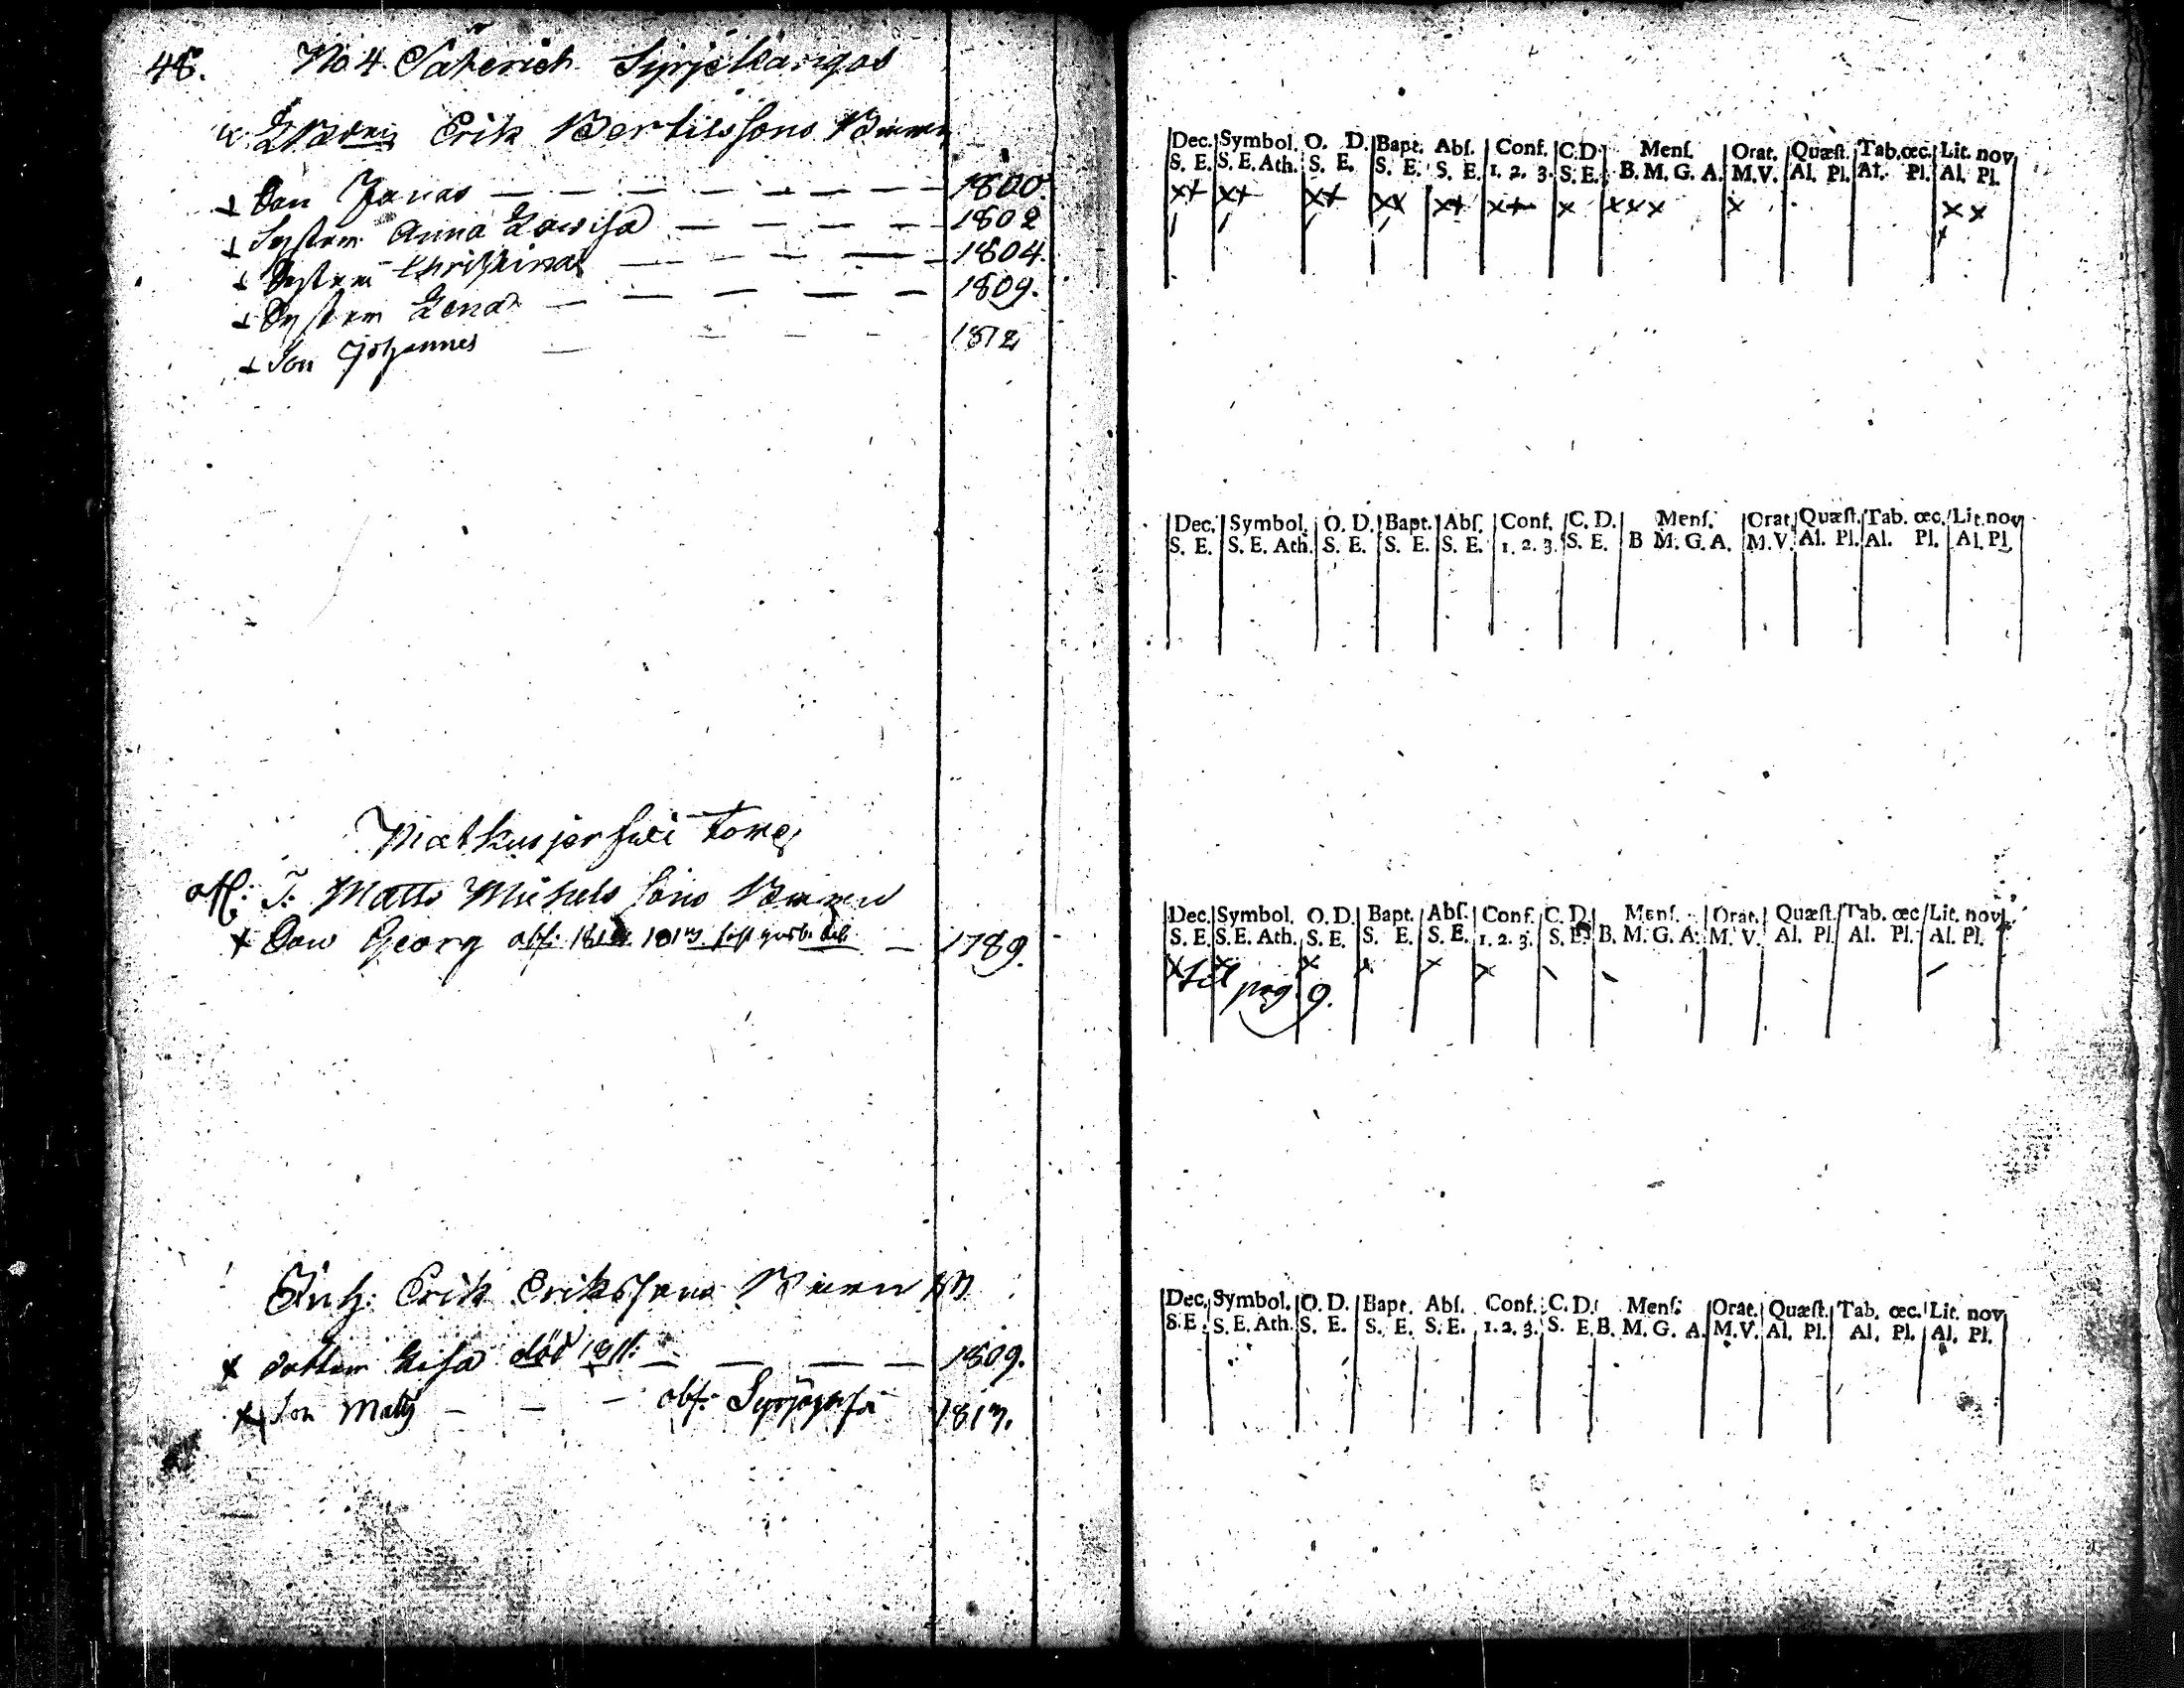 48. No. 4. Säterich Syrjekangas
Erik Bertilssons Barn
Son Jonas — — — — — — — 1800.
System Anna Lowisa — — — — 1802
System Christina — — — — — 1804.
System Lena — — — — — 1809.
Son Johannes — — — — — 1812
Dec. Symbol. O. D. Bapt. Abſ. Conf. C.D. Menſ. Orat. Quæſt. Tab. œc. Lit. nov
S. E. S. E. Ath. S. E. S. E. S. E. 1. 2. 3. S. E. B. M. G. A. M.V. Al. Pl. Al. Pl. Al. Pl.
Dec. Symbol. O. D. Bapt. Abſ. Conf. C. D. Menſ. Orat. Quæſt. Tab. œc. Lit. nov
S. E. S. E. Ath. S. E. S. E. S. E. 1. 2. 3. S. E. B M. G. A. M.V. Al. Pl. Al. Pl. Al. Pl
Matkusjerfwi Torp
aff: T: Matts Michels Sons Barn
Son Georg — 1789.
Dec. Symbol. O. D. Bapt. Abſ. Conf. C. D. Menſ. Orat. Quæſt. Tab. œc. Lit. nov
S. E. S. E. Ath. S. E. S. E. S. E. 1. 2. 3. S. E. B. M. G. A. M. V. Al. Pl. Al. Pl. Al. Pl.
till pag. 9.
Inh: Erik Erikssons Barn
dotter Lisa död 1811. — — — — 1809.
Son Matts — — — 1813.
Dec. Symbol. O. D. Bapt. Abſ. Conf. C. D. Menſ. Orat. Quæſt. Tab. œc. Lit. nov
S. E. S. E. Ath. S. E. S. E. S. E. 1. 2. 3. S. E. B. M. G. A. M.V. Al. Pl. Al. Pl. Al. Pl.